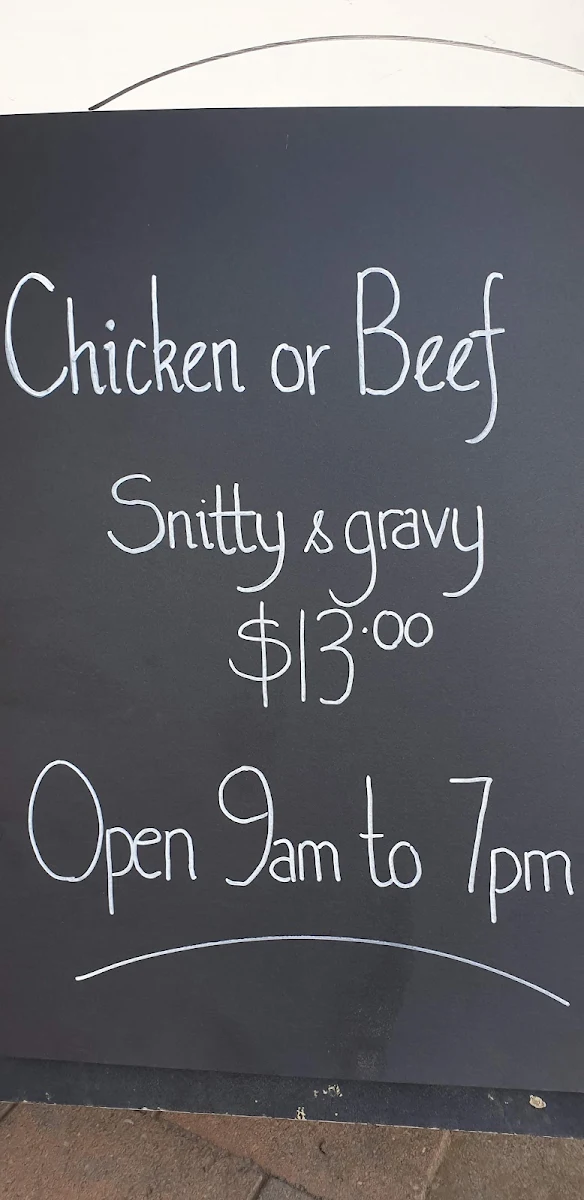 Chicken or Beef
Snitty & gravy
$13.00
Open 9am to 7pm